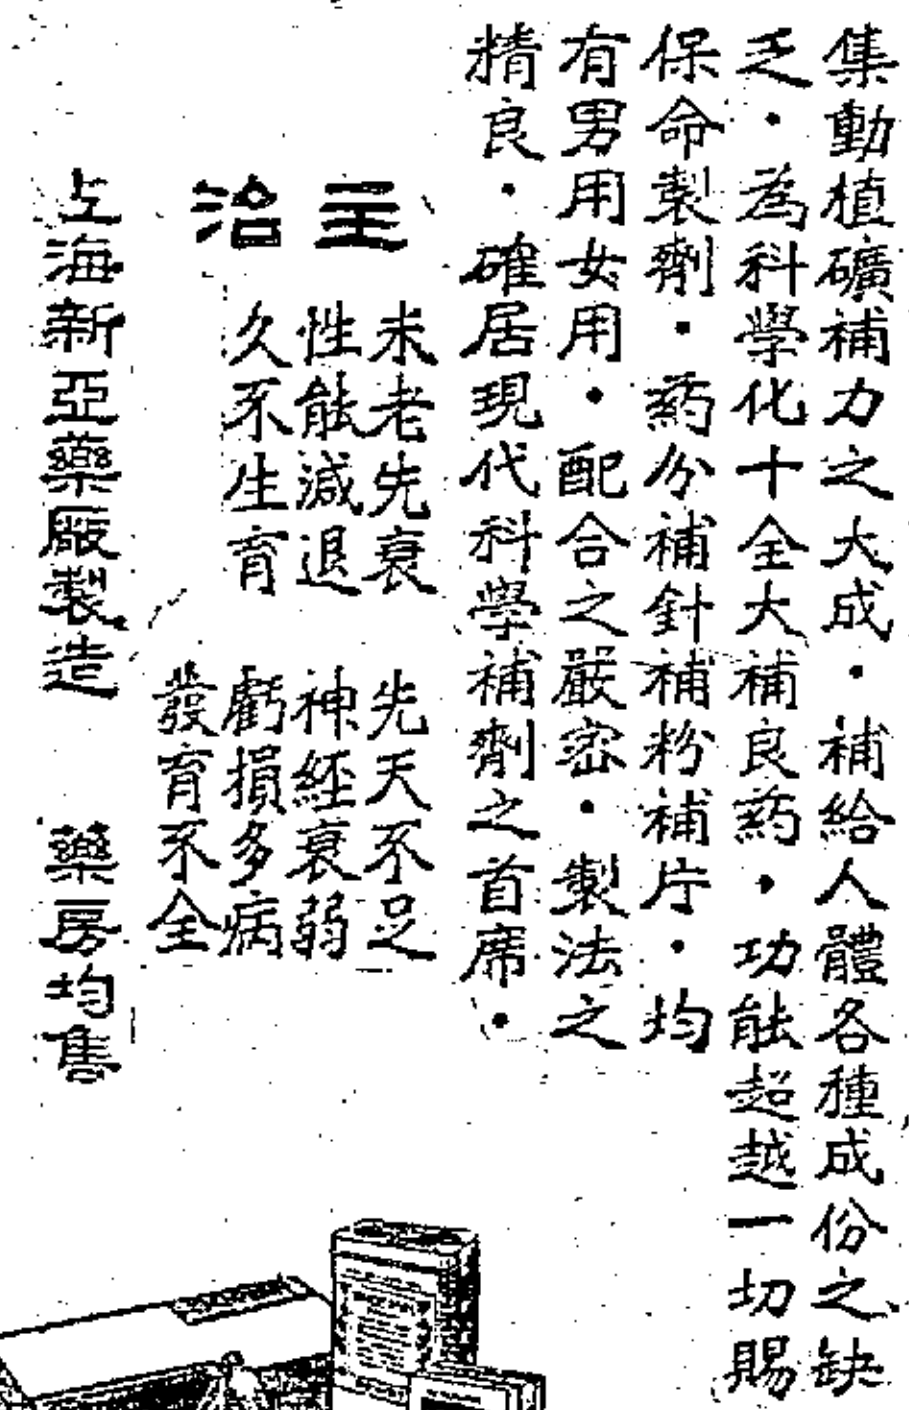 集動植礦補力之大成・補給人體各種成份之缺
乏・為科學化十全大補良葯・功能超越一切賜
保命製劑・葯分補針補粉補片・均
有男用女用・配合之嚴密・製法之
精良・確居現代科學補劑之首席・
主治
未老先衰 先天不足
性能減退 神經衰弱
久不生育 虧損多病
發育不全
上海新亞藥廠製造 藥房均售